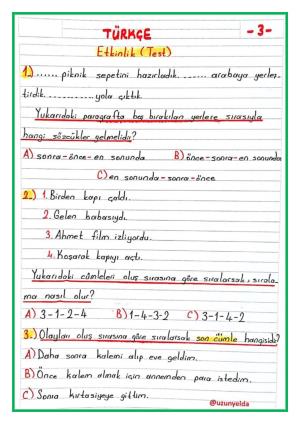 TÜRKÇE
-3-
Etkinlik (Test)
1.) ...... piknik sepetini hazırladık. ....... arabaya yerleş-
tirdik. ........... yola çıktık.
Yukarıdaki paragrafta boş bırakılan yerlere sırasıyla
hangi sözcükler gelmelidir?
A) sonra-önce-en sonunda
B) önce-sonra-en sonunda
C) en sonunda-sonra-önce
2.) 1. Birden kapı çaldı.
2. Gelen babasıydı.
3. Ahmet film izliyordu.
4. Koşarak kapıyı açtı.
Yukarıdaki cümleleri oluş sırasına göre sıralarsak, sırala-
ma nasıl olur?
A) 3-1-2-4
B) 1-4-3-2
C) 3-1-4-2
3.) Olayları oluş sırasına göre sıralarsak son cümle hangisidir?
A) Daha sonra kalemi alıp eve geldim.
B) Önce kalem almak için annemden para istedim.
C) Sonra kırtasiyeye gittim.
@uzunyelda